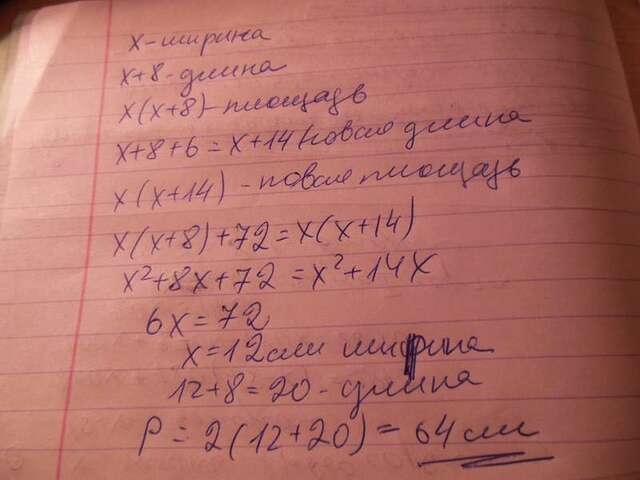 x - ширина
x+8 - длина
x(x+8) - площадь
x+8+6 = x+14 новая длина
x(x+14) - новая площадь
x(x+8)+72 = x(x+14)
x²+8x+72 = x²+14x
6x = 72
x = 12 см ширина
12+8 = 20 - длина
P = 2(12+20) = 64 см